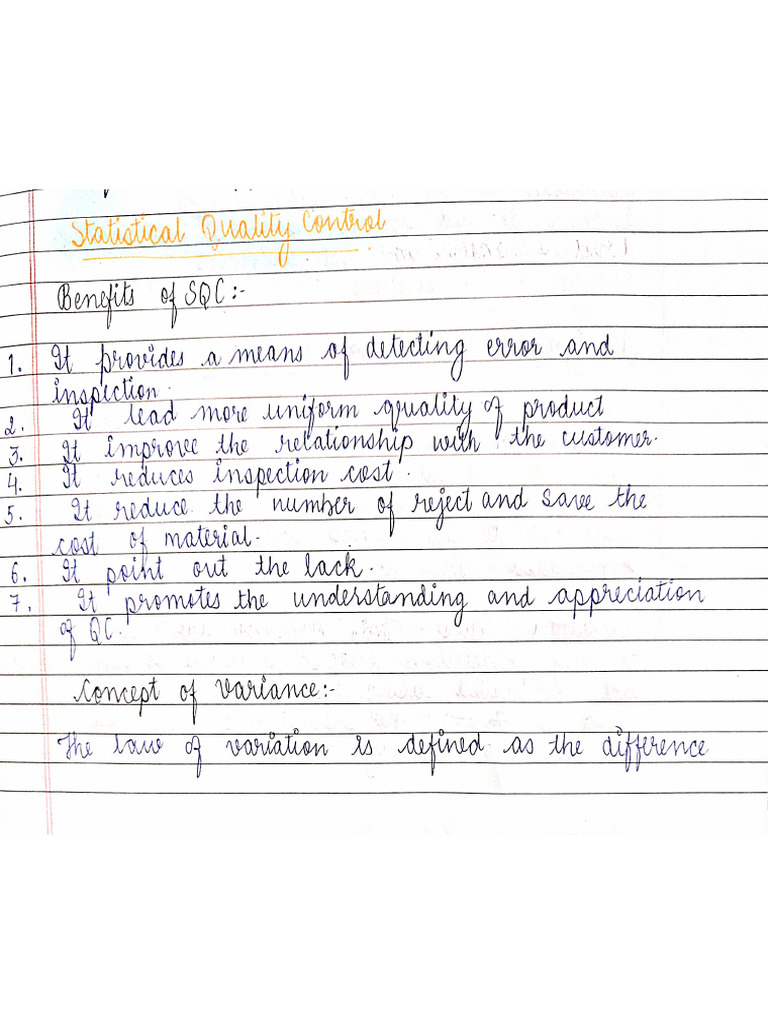 Statistical Quality Control
Benefits of SQC:-
1. It provides a means of detecting error and
inspection.
2. It lead more uniform quality of product
3. It improve the relationship with the customer.
4. It reduces inspection cost.
5. It reduce the number of reject and save the
cost of material.
6. It point out the lack.
7. It promotes the understanding and appreciation
of QC.
Concept of Variance:-
The law of variation is defined as the difference